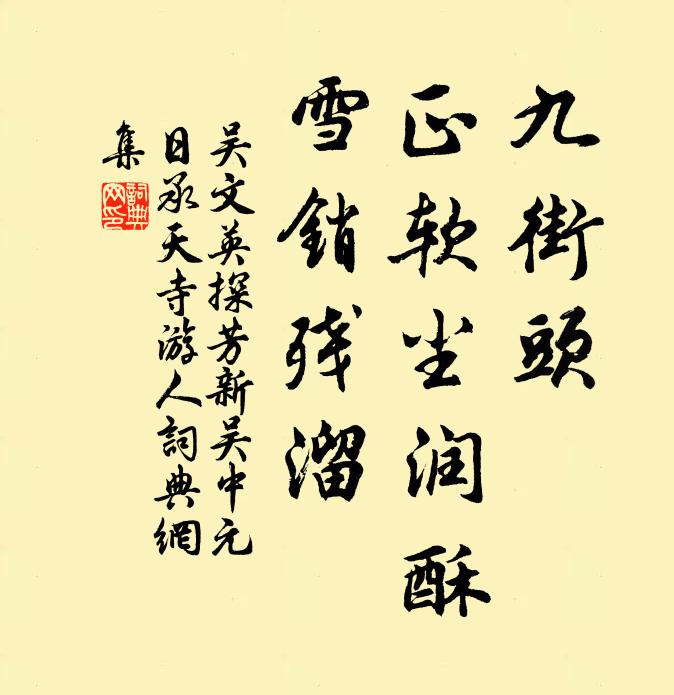 九街頭
正软尘润酥
雪銷残溜
吴文英探芳新吴中元
日承天寺游人詞典網
集
詞典
网印